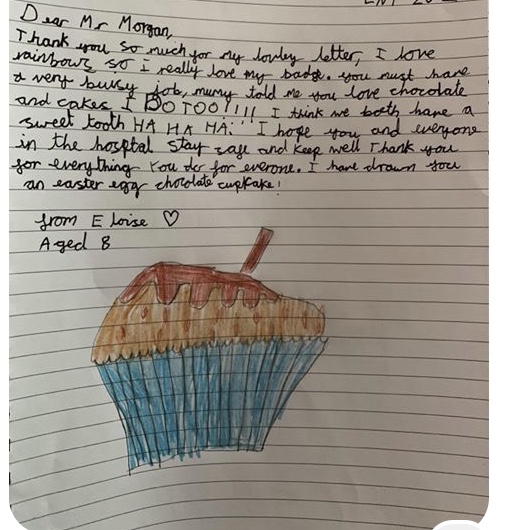 Dear Mr Morgan,
Thank you so much for my lovley letter, I love
rainbows so i really love my badge. you must have
a very buisy job, mumy told me you love chocolate
and cakes I DO TOO!!!! I think we both have a
sweet tooth HA HA HA. I hope you and everyone
in the hosptal stay safe and keep well Thank you
for everything you do for everone. I have drawn you
an easter egg chocolate cupkake!
from Eloise ♡
Aged 8